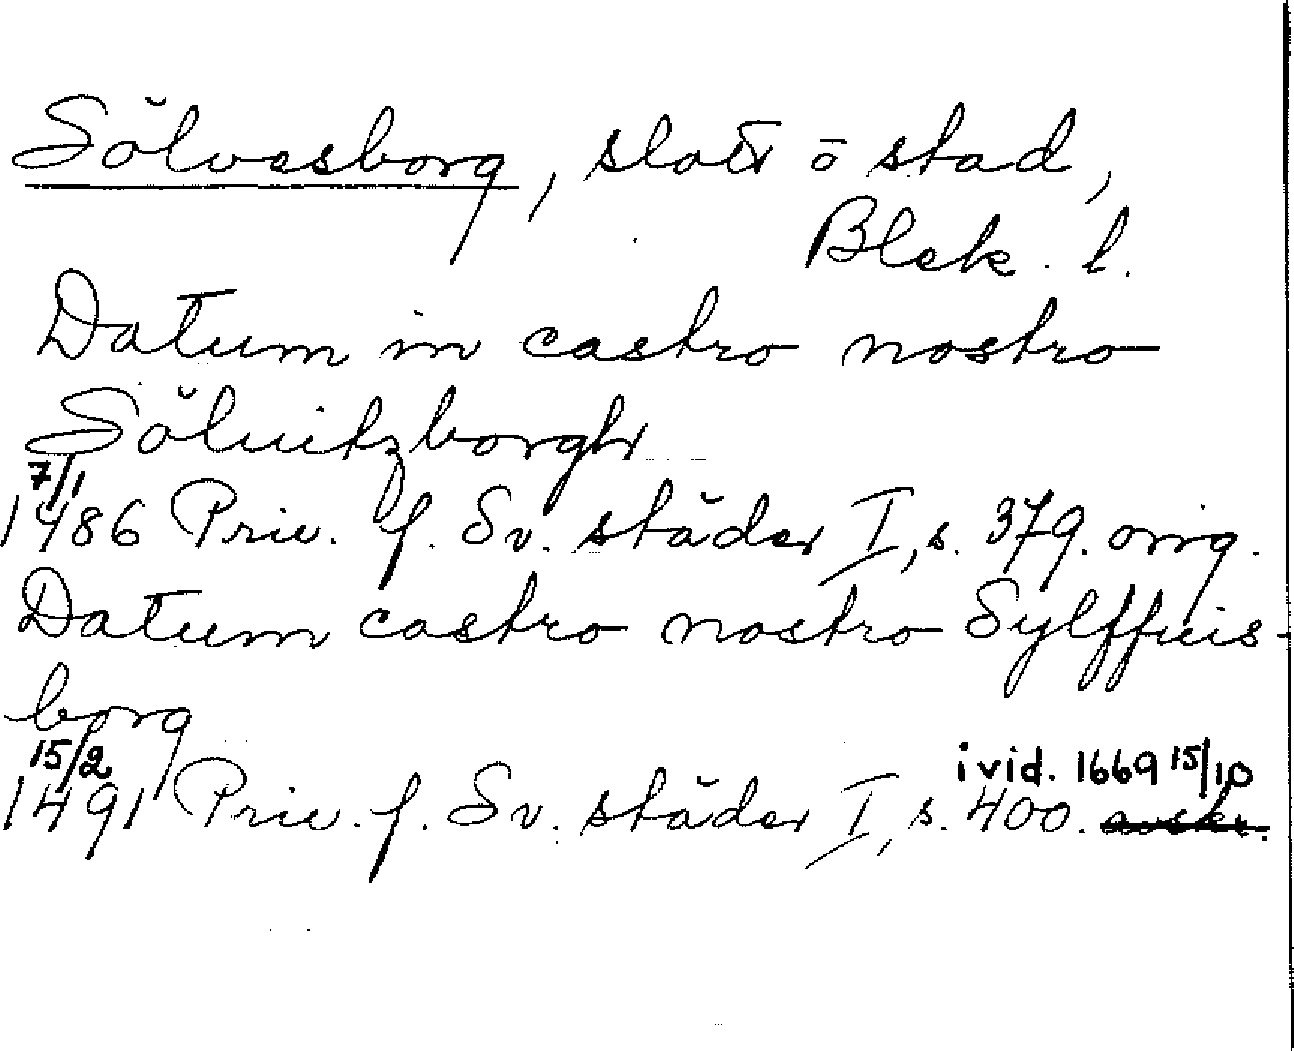 Sölvesborg, slott o stad,
Blek. l.
Datum in castro nostro
Söluitzborgh
7/1
1486 Priv. f. Sv. städer I, s. 379. orig.
Datum castro nostro Sylffuis-
borg
15/2 i vid. 1669 15/10
1491 Priv. f. Sv. städer I, s. 400. avskr.